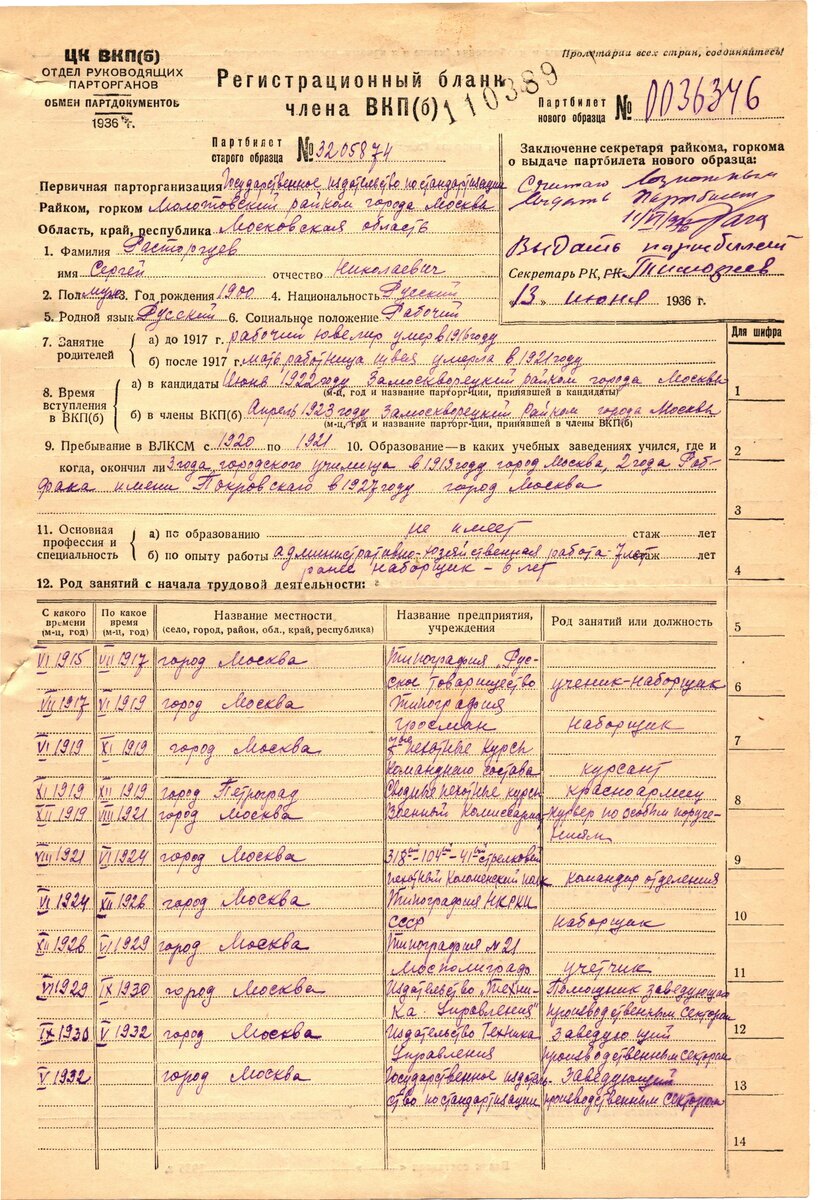 Пролетарии всех стран, соединяйтесь!
ЦК ВКП(б)
ОТДЕЛ РУКОВОДЯЩИХ
ПАРТОРГАНОВ
ОБМЕН ПАРТДОКУМЕНТОВ
1936 г.
Регистрационный бланк
члена ВКП(б)
110389
Партбилет
нового образца № 0036346
Партбилет
старого образца № 3205874
Заключение секретаря райкома, горкома
о выдаче партбилета нового образца:
Считаю возможным
выдать партбилет
11/VI/36
Выдать партбилет
Секретарь РК, РК Тимофеев
„13„ июня 1936 г.
Первичная парторганизация Государственное издательство по стандартизации
Райком, горком Молотовский райком города Москва
Область, край, республика Московская область
1. Фамилия Расторгуев
имя Сергей отчество Николаевич
2. Пол муж 3. Год рождения 1900 4. Национальность Русский
5. Родной язык Русский 6. Социальное положение Рабочий
7. Занятие родителей
а) до 1917 г. рабочий ювелир умер в 1916 году
б) после 1917 г. мать работница швея умерла в 1921 году
8. Время вступления в ВКП(б)
а) в кандидаты Июнь 1922 году Замоскворецкий райком города Москвы
(м-ц, год и название парторг-ции, принявшей в кандидаты)
б) в члены ВКП(б) Апрель 1923 году Замоскворецкий Райком города Москвы
(м-ц, год и название парторг-ции, принявшей в члены ВКП(б)
9. Пребывание в ВЛКСМ с 1920 по 1921 10. Образование — в каких учебных заведениях учился, где и
когда, окончил ли 3 года городского училища в 1913 году город Москва, 2 года Раб-
фака имени Покровскаго в 1927 году город Москва
11. Основная профессия и специальность
а) по образованию не имеет стаж лет
б) по опыту работы административно-хозяйственная работа - 7 лет стаж лет
ранее наборщик - 6 лет
12. Род занятий с начала трудовой деятельности:
С какого времени (м-ц, год) По какое время (м-ц, год) Название местности (село, город, район, обл., край, республика) Название предприятия, учреждения Род занятий или должность
VI 1915 VII 1917 город Москва Типография „Рус-
ское товарищество ученик-наборщик
VII 1917 VI 1919 город Москва Типография
Гросман наборщик
VI 1919 XI 1919 город Москва пехотные курсы
командного состава курсант
XI 1919 XII 1919 город Петроград Сводные пехотные курсы красноармеец
XII 1919 VIII 1921 город Москва Военный Комиссариат курьер по особым поруче-
ниям
VIII 1921 VI 1924 город Москва 318ый-104ый-41ый стрелковый
пехотный Коломенский полк Командир отделения
VI 1924 XII 1928 город Москва Типография НКРКИ
СССР наборщик
XII 1928 VI 1929 город Москва Типография №21
Мосполиграф учетчик
VI 1929 IX 1930 город Москва Издательство „Техни- Помощник заведующая
ка Управления" производственным сектором
IX 1930 V 1932 город Москва Издательство Техника Заведующий
Управления производственным сектором
V 1932 город Москва Государственное издатель- Заведующий
ство по стандартизации производственным сектором
Для шифра
1
2
3
4
5
6
7
8
9
10
11
12
13
14